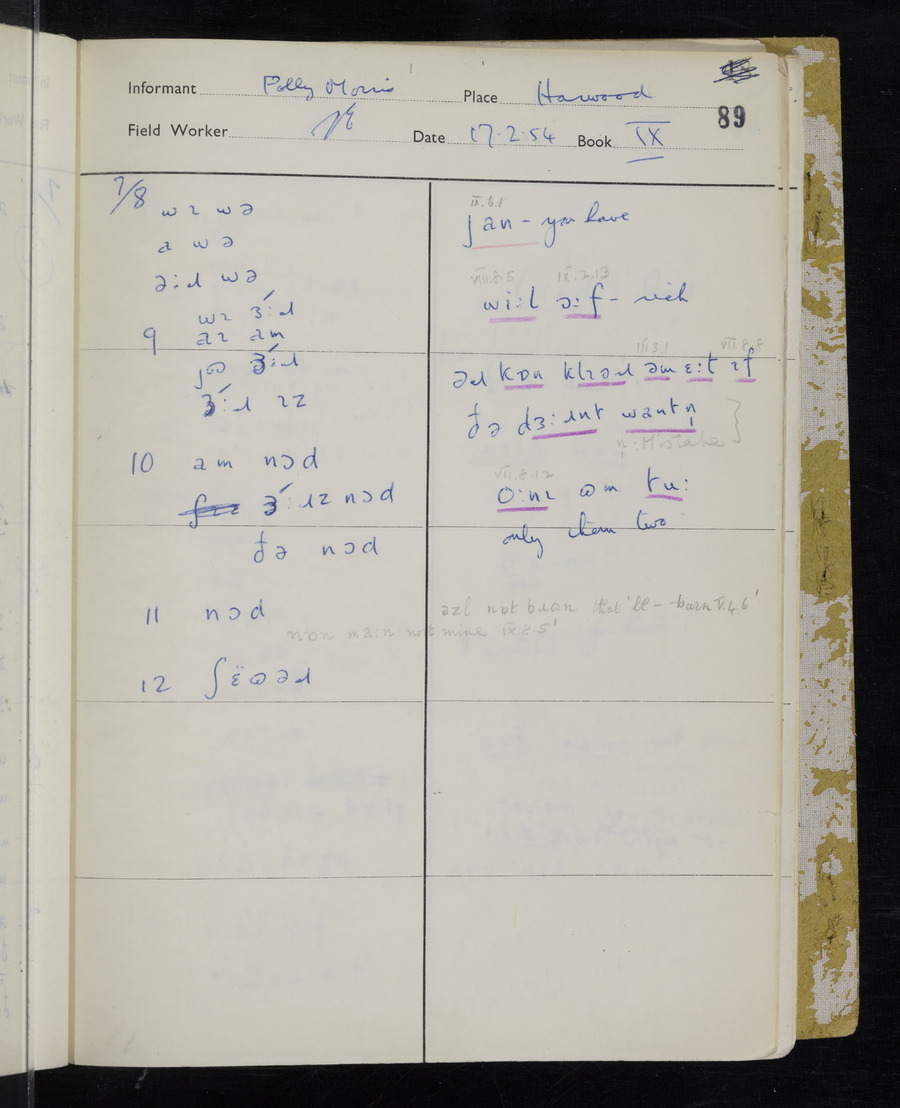 Informant Polly Morris Place Harwood
89
Field Worker Date 17.2.54 Book IX
7/8 wɪ wə
a wə
əːɹ wə
wɪ ɜ́ːɹ
9 aɪ am
jɷ ɜ́ːɹ
ɜ́ːɹ ɪz
10 am nɔd
ɜ́ːɹɪz nɔd
ðə nɔd
11 nɔd
nɒn maːn not mine IX.8.5'
12 ʃɛ̈ɷəɹ
IX.6.1
jan - you have
VIII.8.5 IX.2.13
wiːl ɔːf - sich
III.3.1 VII.8.8
əɹ kɒn klɪəɹ əm ɛːt ɪf
ðə dɜːɹnt wantn̩
n̩: Mistake
VII.8.12
Oːnɪ ɷm tuː
only them two
əzl nɒt bɹɷn that'll -- burn V.4.6'